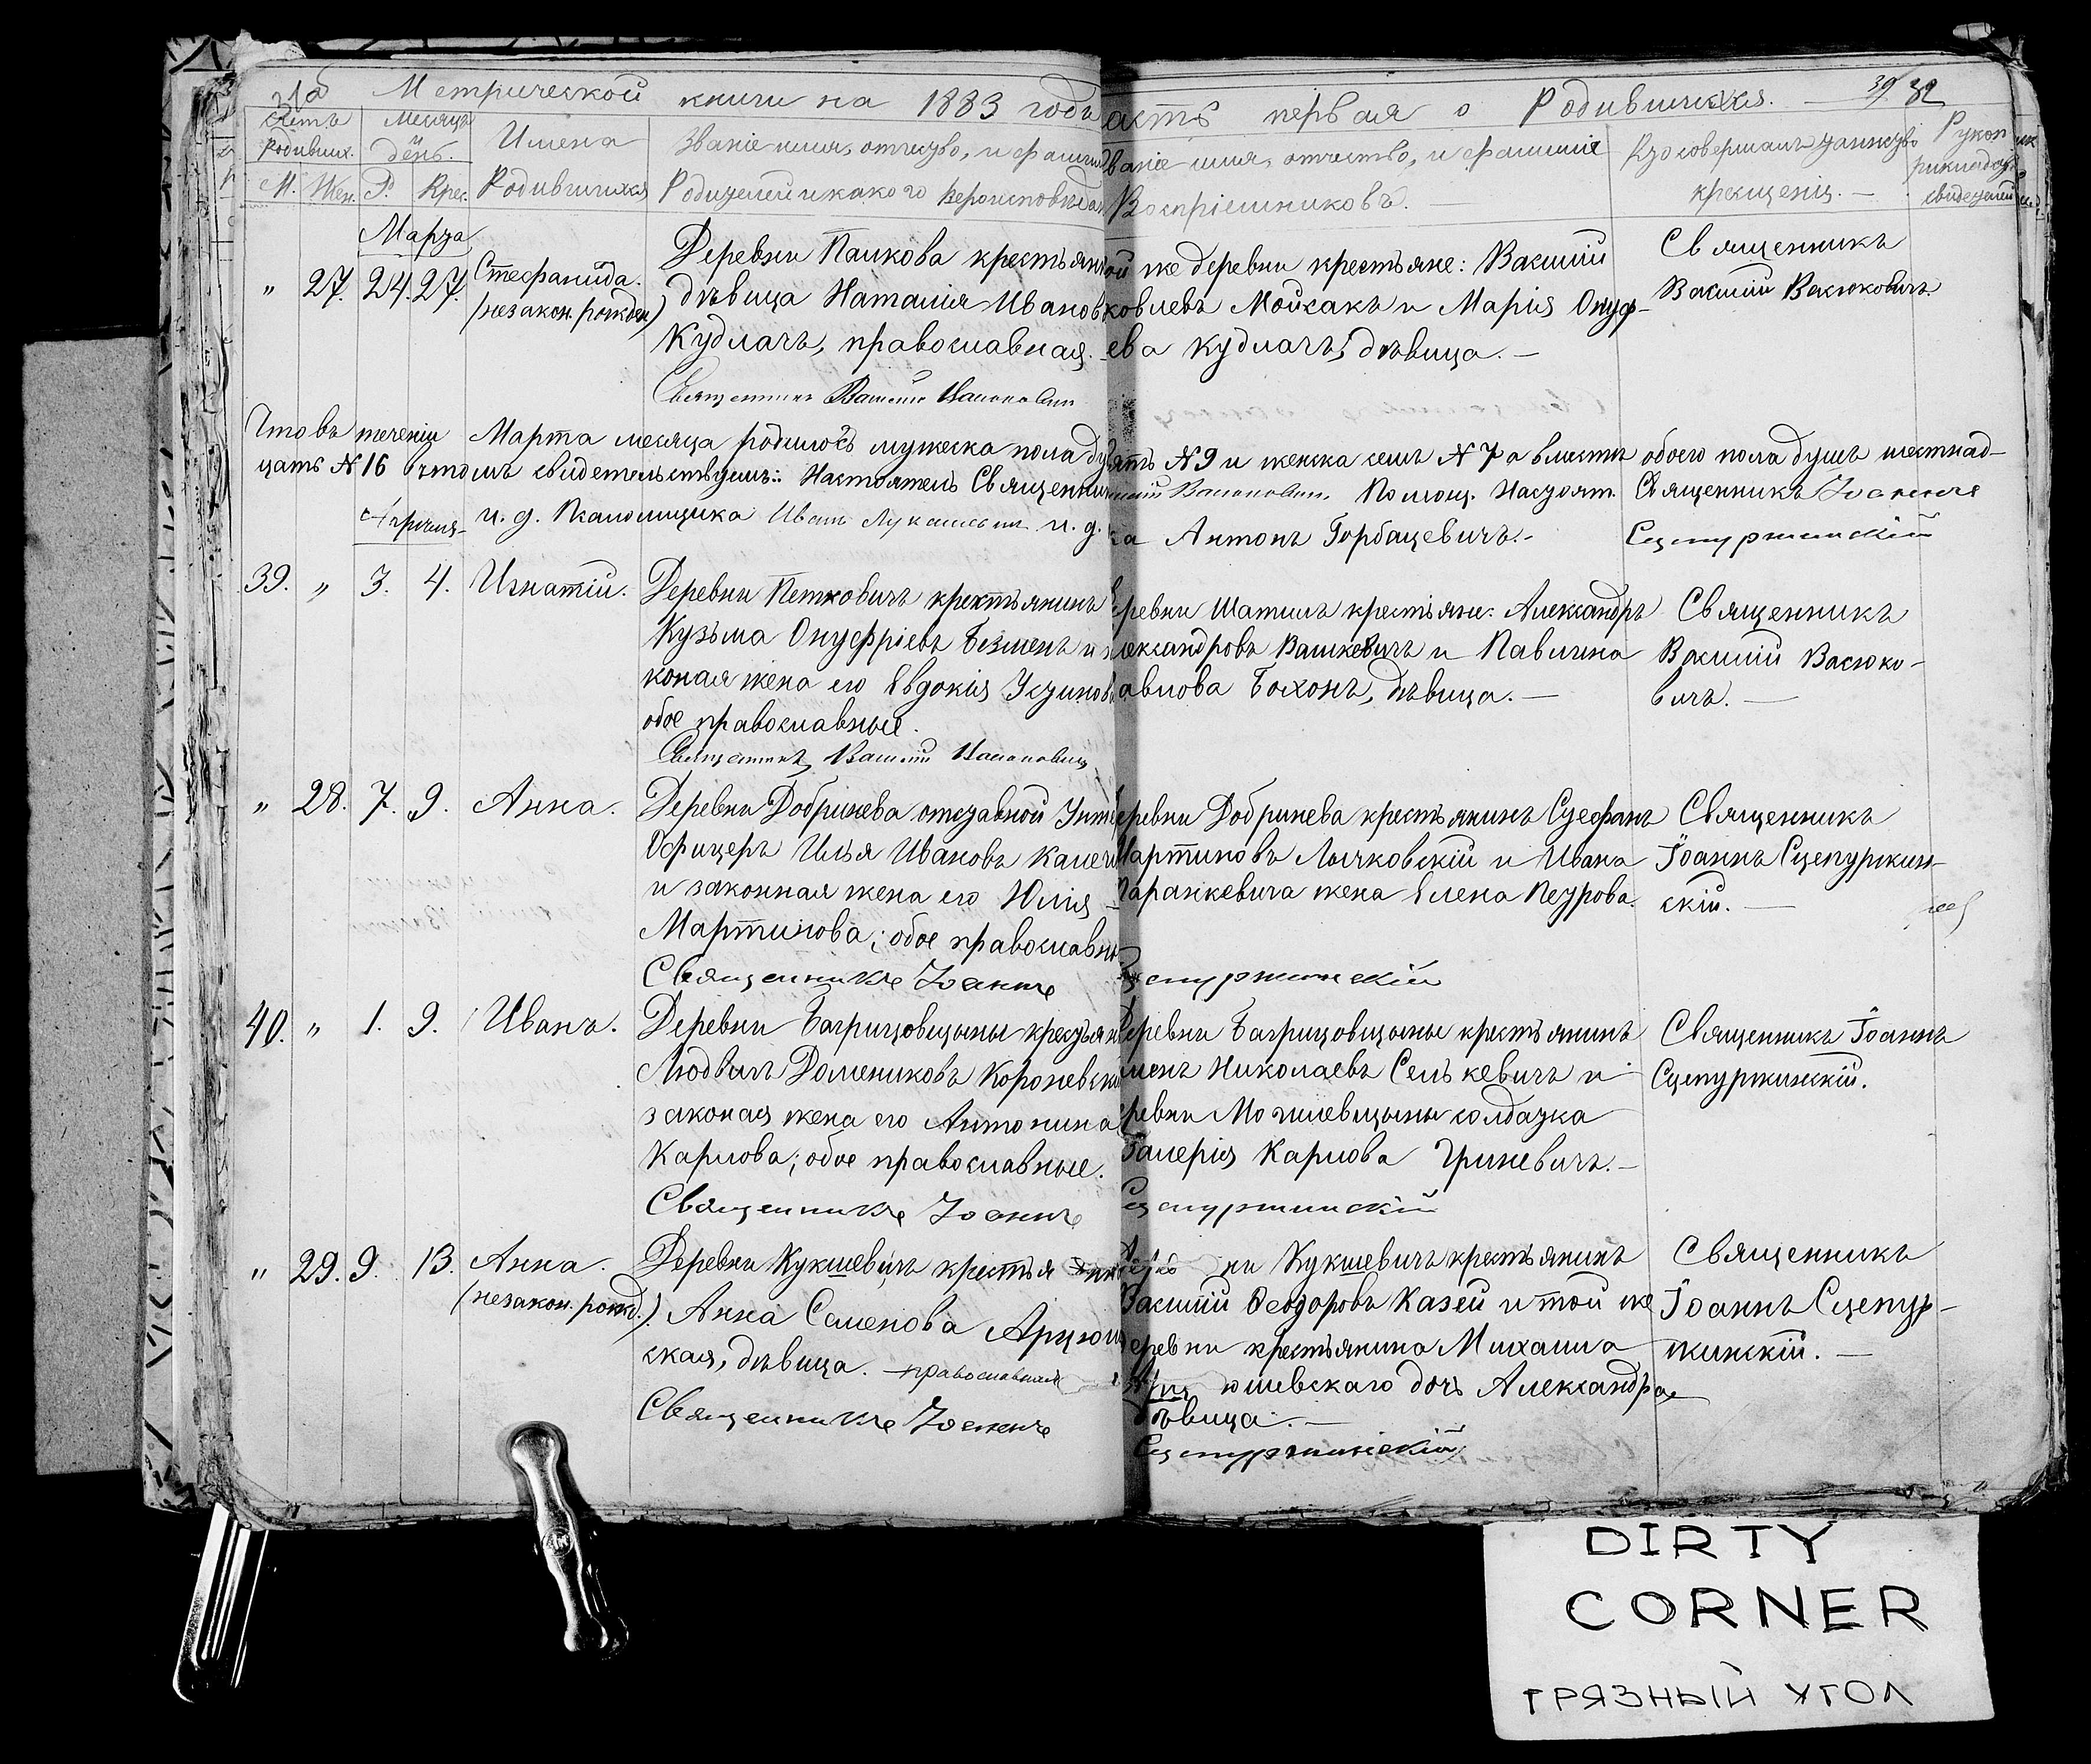 31об Метрической книги на 1883 годъ
асть первая о Родившихся. 39 32
Счетъ Родивших. Месяцъ и день. Имена Званіе имя, отчество, и фамилія
М. Жен. Р. Крес. Родившихся Родителей и какого вероисповеда
Званіе имя, отчество, и фамилія Кто совершалъ таинство Рукоп
Воспріемниковъ. крещенія. свидетелей
Марта
" 27. 24. 27. Стефанида.
(незакон. рожден)
Деревни Панкова крестьян
дѣвица Наталія Иванов
Кудлачъ, православная.
Священникъ Василій
ой же деревни крестьяне: Василій
ковлевъ Мойсакъ и Марія Онуф-
ева Кудлачъ, дѣвица. —
Священникъ
Василій Васюковичъ.
Что въ теченіи Марта месяца родилось мужеска пола ду
ять № 9 и женска семь № 7 а вместе обоего пола душъ шестнад-
цать № 16 въ томъ свидетельствуемъ: Настоятель Священник
Помощ. Настоят. Священникъ Іоаннъ
Апреля и. д. Псаломщика Иванъ Лукашевичъ и. д.
ка Антонъ Горбацевичъ. Сцепуржинскій
39. " 3. 4. Игнатій.
Деревни Петковичъ крестьянинъ
Кузьма Онуфріевъ Безменъ и за
коная жена его Евдокія Устинов
обое православные.
Священникъ Василій
еревни Шатилъ крестьяне: Александръ
лександровъ Вашкевичъ и Павлина
авлова Бохонъ, дѣвица. —
Священникъ
Василій Васюко-
вичъ. —
" 28. 7. 9. Анна.
Деревни Добринева отставной Унт
Офицеръ Илья Ивановъ
и законная жена его Юлія
Мартинова; обое православн
Священникъ Іоаннъ
еревни Добринева крестьянинъ Стефанъ
Мартиновъ Лычковскій и Ивана
Таранкевича жена Елена Петрова.
Сцепуржинскій
Священникъ
Іоаннъ Сцепуржин-
скій. —
40. " 1. 9. Иванъ.
Деревни Багрицовщины крестьян
Людвигъ Домениковъ Короневск
законая жена его Антонина
Карлова; обое православные.
Священникъ Іоаннъ
Деревни Багрицовщины крестьянинъ
менъ Николаевъ Сенькевичъ и
ревни Могилевщины солдатка
Валерія Карлова Гриневичъ. —
Сцепуржинскій
Священникъ Іоаннъ
Сцепуржинскій.
" 29. 9. 13. Анна.
(незакон. рожд.)
Деревни Кукшевичъ крестья
Анна Семенова Арцюш
ская, дѣвица. православная
Священникъ Іоаннъ
ни Кукшевичъ крестьянинъ
Василій Феодоровъ Казей и той же
деревни крестьянина Михаила
юшевскаго дочь Александра
дѣвица. —
Сцепуржинскій
Священникъ
Іоаннъ Сцепур-
жинскій. —
DIRTY
CORNER
ГРЯЗНЫЙ УГОЛ